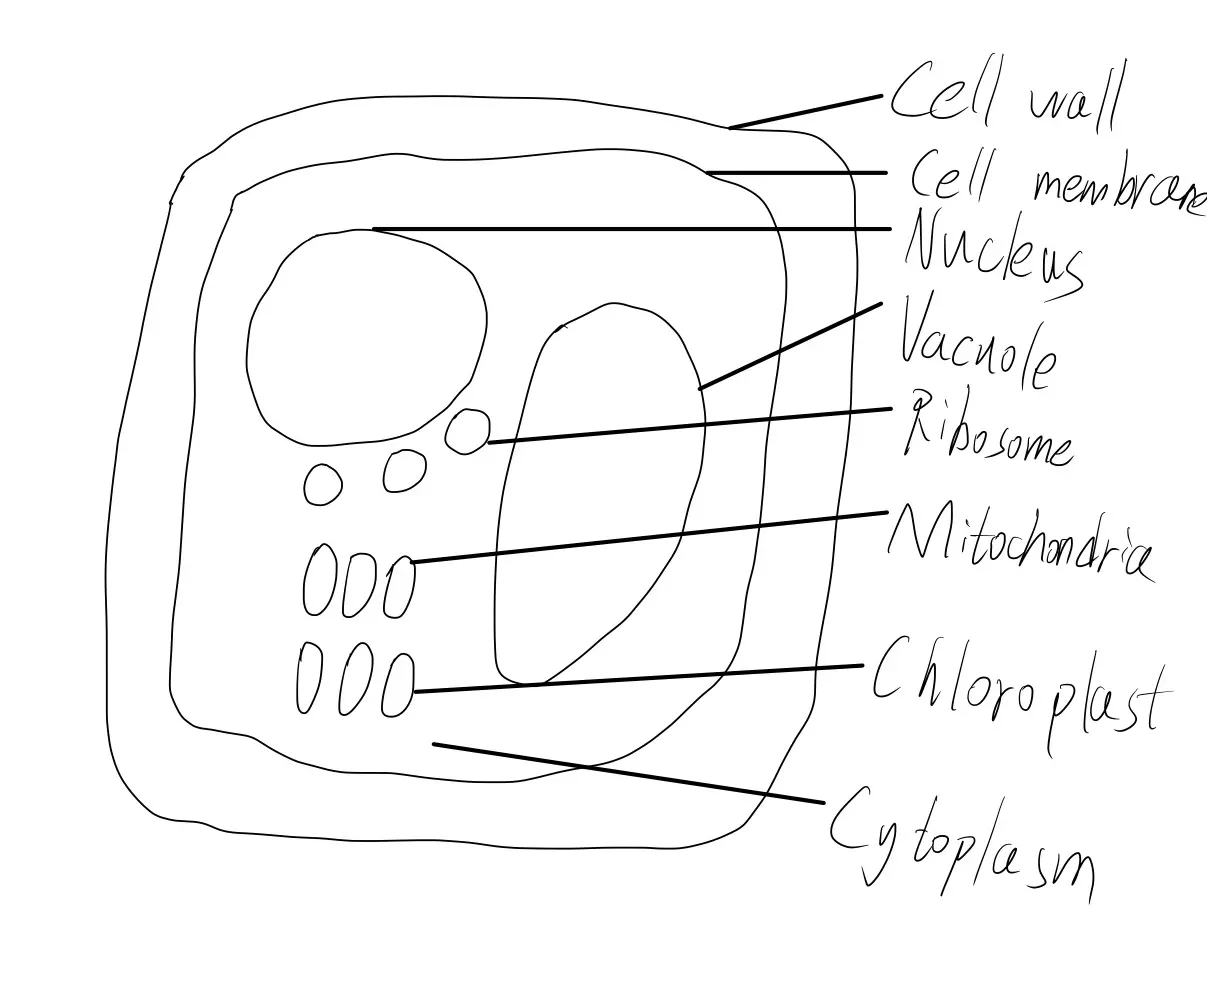 Cell wall
Cell membrane
Nucleus
Vacuole
Ribosome
Mitochondria
Chloroplast
Cytoplasm